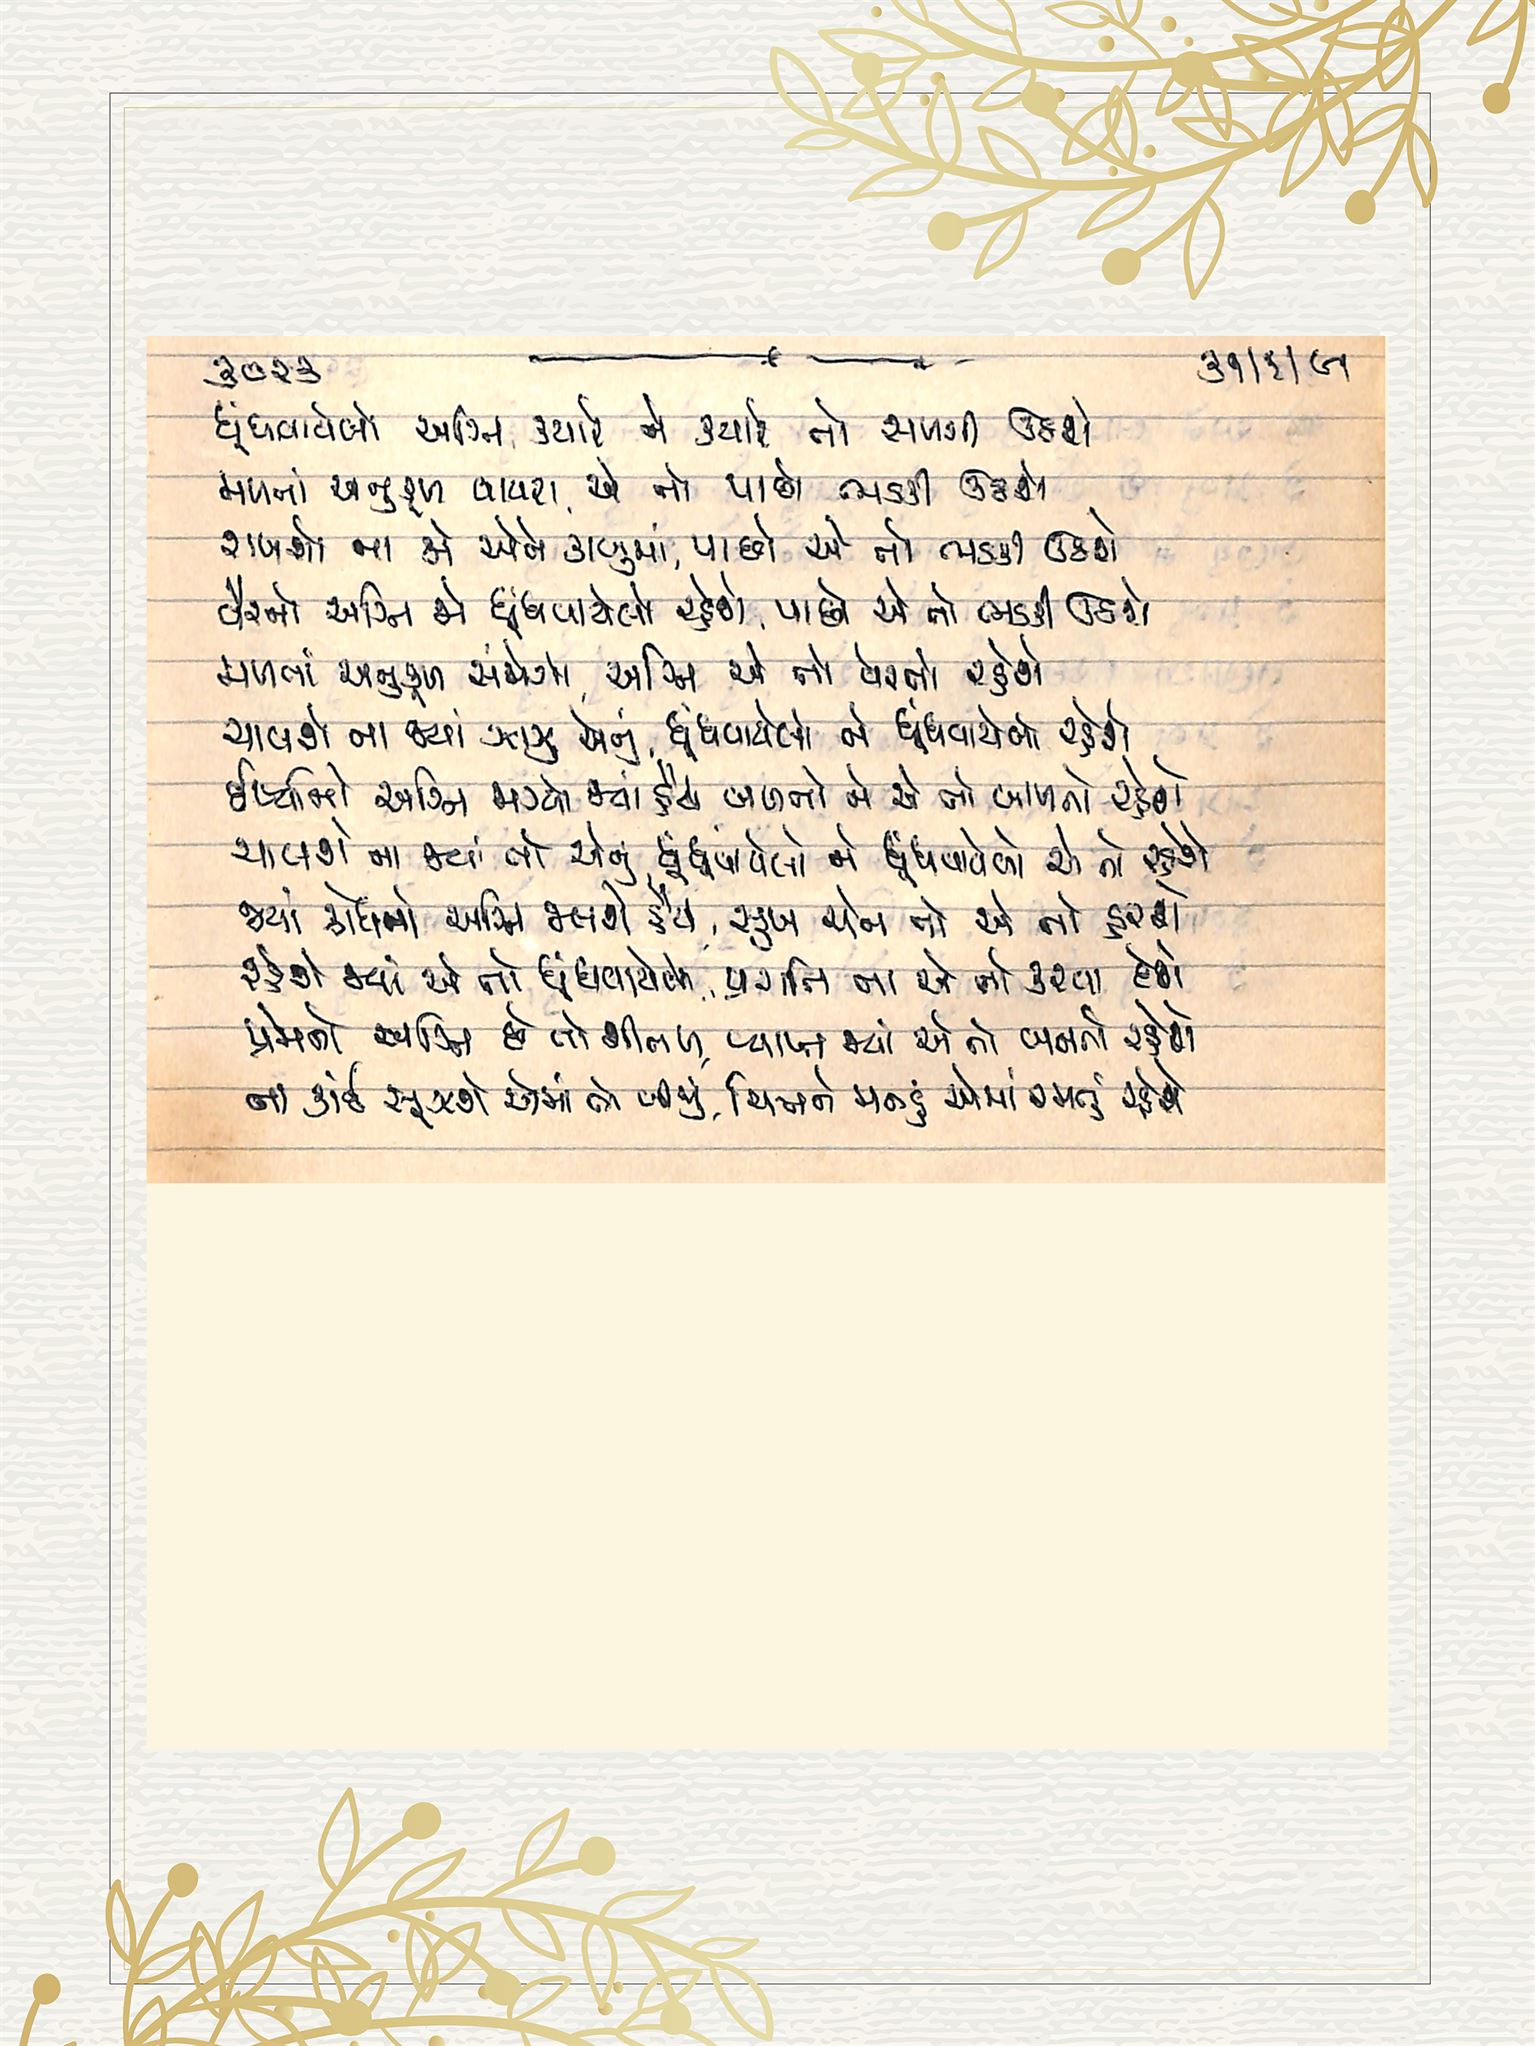 ૩૦૨૩
ધૂંધવાયેલો અગ્નિ, ક્યારે ને ક્યારે તો સળગી ઊઠશે
મળતાં અનુકૂળ વાયરા, એ તો પાછો ભડકી ઊઠશે
રાખશો ના જો એને કાબુમાં, પાછો એ તો ભડકી ઊઠશે
વૈરનો અગ્નિ જો ધૂંધવાયેલો રહેશે, પાછો એ તો ભડકી ઊઠશે
મળતાં અનુકૂળ સંયોગો, અગ્નિ એ તો વેરતો રહેશે
ચાલશે ના જ્યાં ઝાઝુ એનું, ધૂંધવાયેલો ને ધૂંધવાયેલો રહેશે
ઈર્ષ્યાનો અગ્નિ જાગ્યો જ્યાં હૈયે બળતો ને એ તો બાળતો રહેશે
ચાલશે ના જ્યાં તો એનું, ધૂંધવાયેલો ને ધૂંધવાયેલો એ તો રહેશે
જ્યાં ક્રોધનો અગ્નિ જલશે હૈયે, સુખ ચેન તો એ તો હરશે
રહેશે જ્યાં એ તો ધૂંધવાયેલો, પ્રગતિ ના એ તો કરવા દેશે
પ્રેમનો અગ્નિ છે તો શીતળ, વ્યાપ્ત જ્યાં એ તો બનતો રહેશે
ના કાંઈ સૂઝશે એમાં તો બીજું, ચિત્તને મનડું એમાં રમતું રહેશે